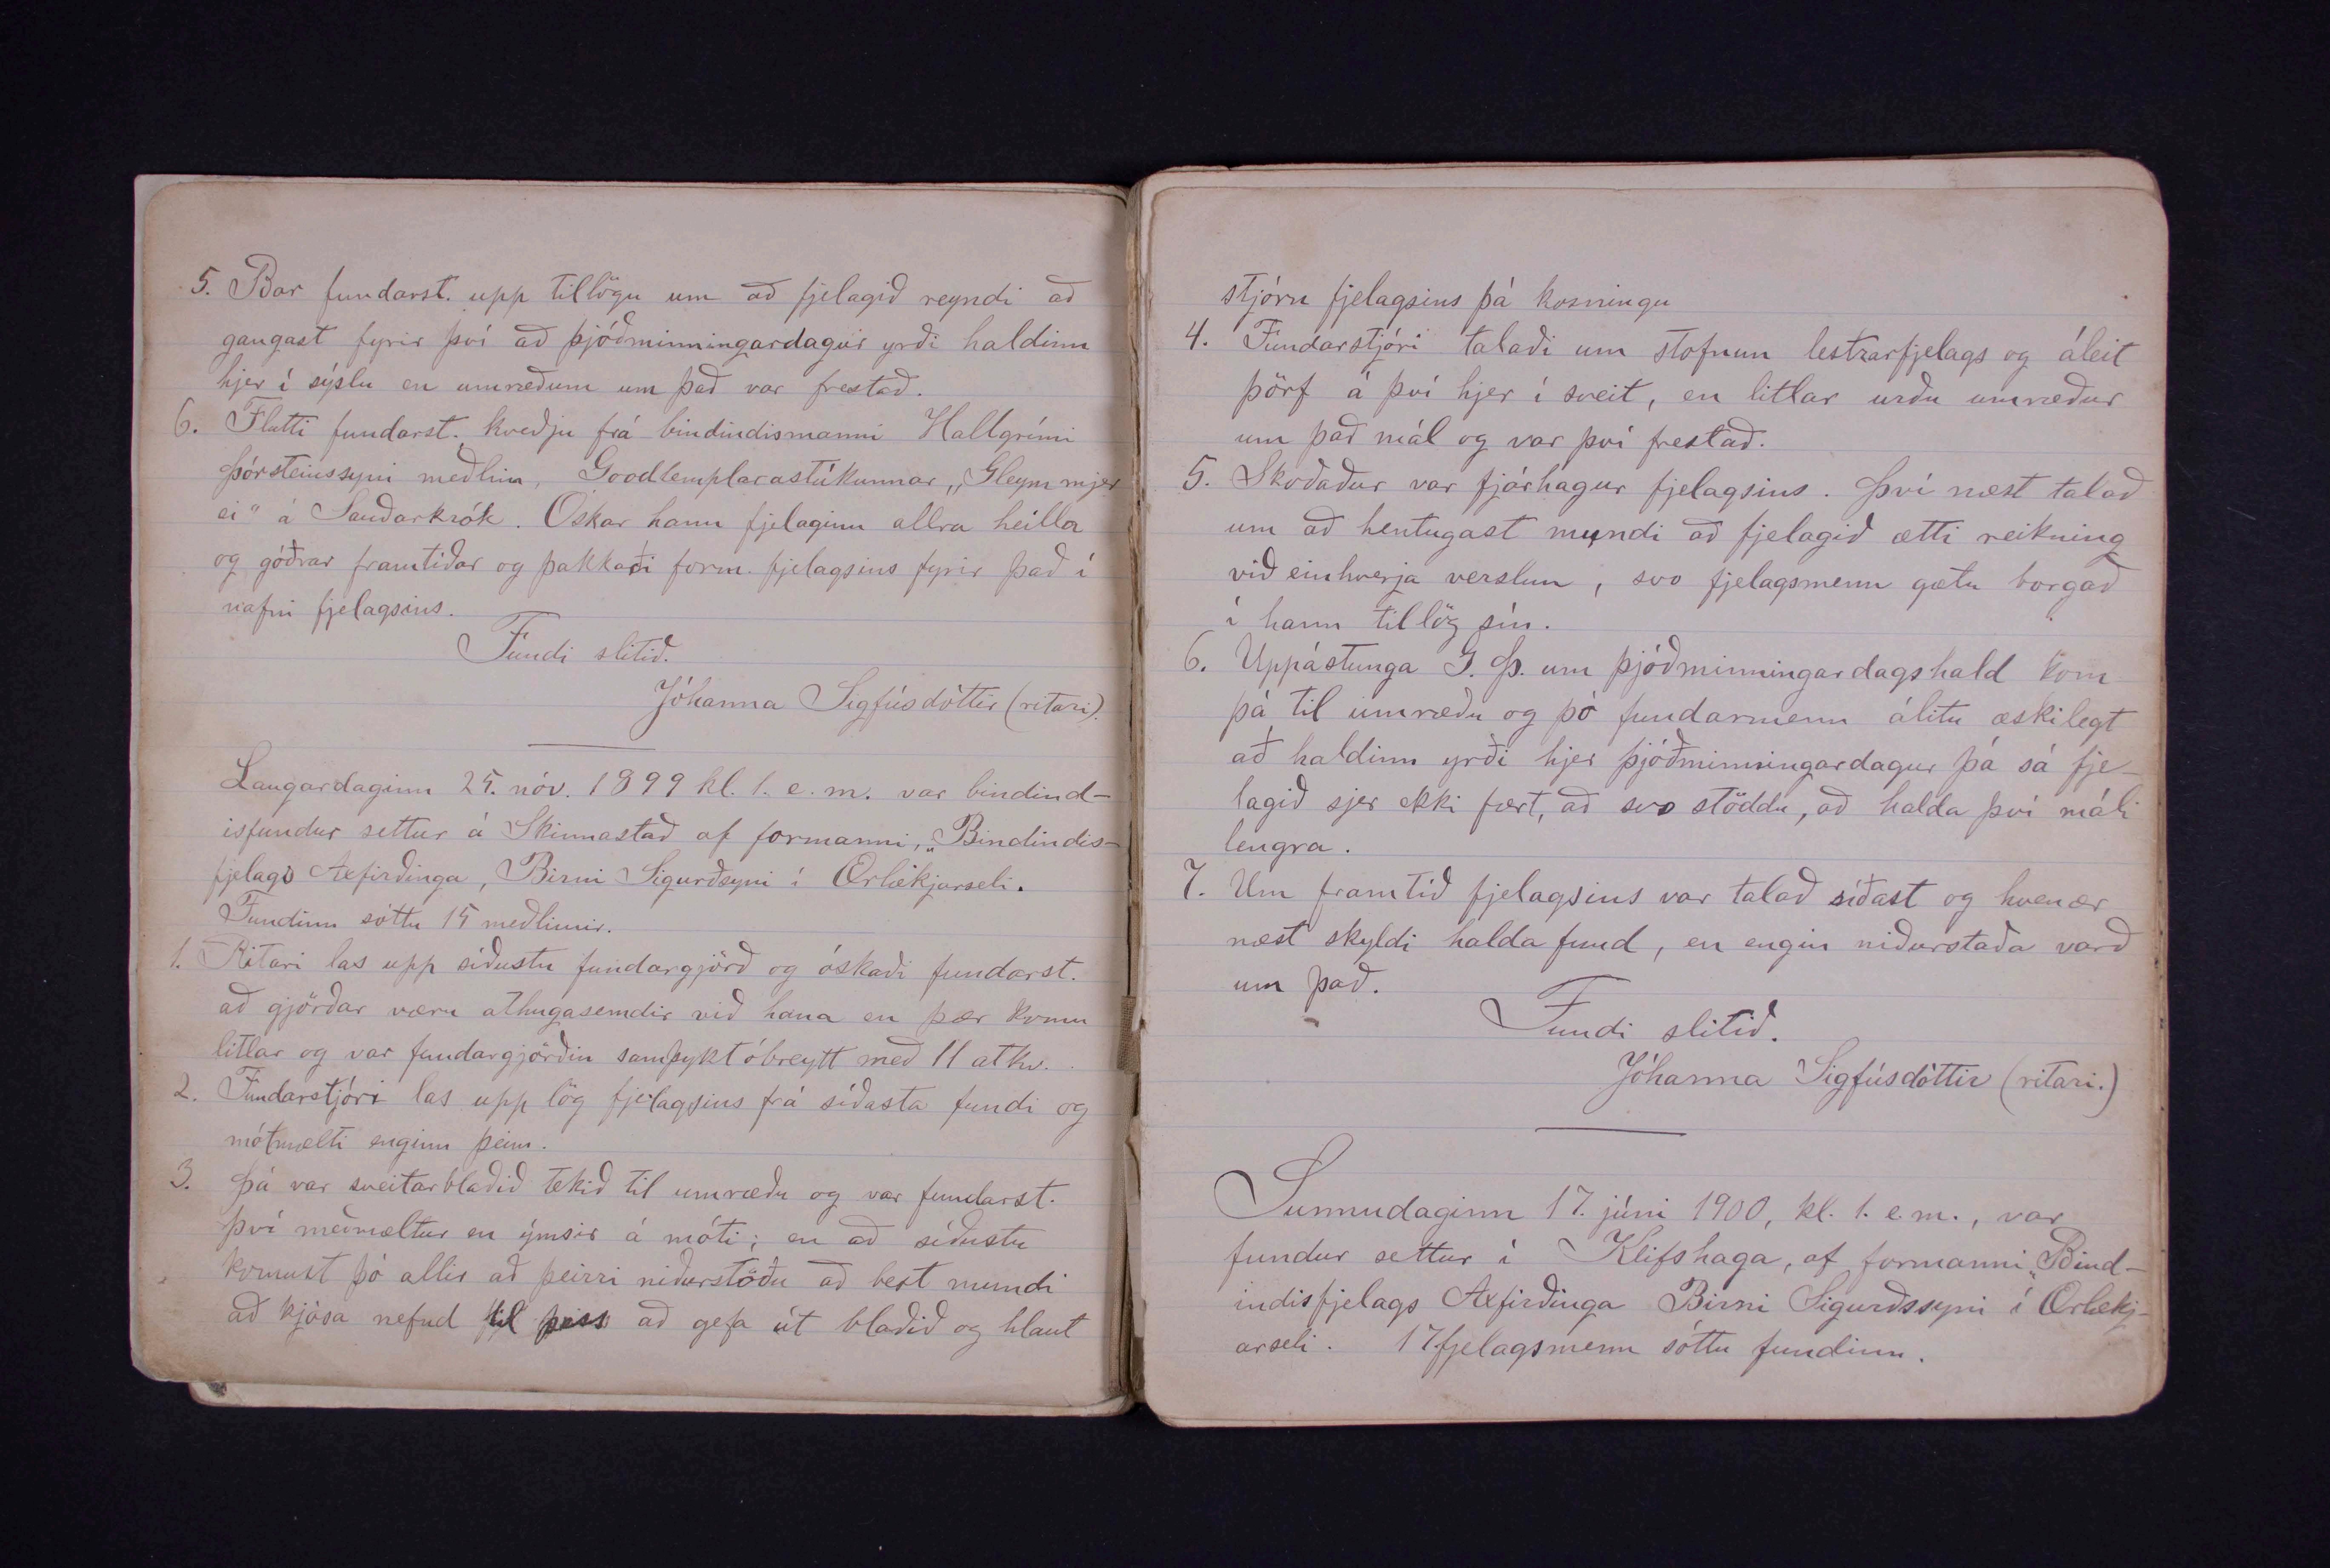 5. Bar fundarst. upp tillögu um að fjelagið reyndi að
gangast fyrir því að þjóðminningardagur yrði haldinn
hjer í sýslu en umræðum um það var frestað.
6. Flutti fundarst. kveðju frá bindindismanni Hallgrími
Þórsteinssyni meðlim, Goodtemplarastúkunnar „Gleym mjer
ei" á Sauðarkrók. Óskar hann fjelaginu allra heilla
og góðrar framtíðar og þakkaði form. fjelagsins fyrir það í
nafni fjelagsins.
Fundi slitið.
Jóhanna Sigfúsdóttir (ritari).
Laugardaginn 25. nóv. 1899 kl. 1. e. m. var bindind-
isfundur settur á Skinnastað af formanni, „Bindindis-
fjelags Axfirðinga, Birni Sigurðsyni í Ærlækjarseli.
Fundinn sóttu 15 meðlimir.
1. Ritari las upp síðustu fundargjörð og óskaði fundarst.
að gjörðar væru athugasemdir við hana en þær komu
litlar og var fundargjörðin samþykt óbreytt með 11 atkv.
2. Fundarstjóri las upp lög fjelagsins frá síðasta fundi og
mótmælti enginn þeim.
3. Þá var sveitarblaðið tekið til umræðu og var fundarst.
því meðmæltur en ýmsir á móti; en að síðustu
komust þó allir að þeirri niðurstöðu að best mundi
að kjósa nefnd til þess að gefa út blaðið og hlaut
stjórn fjelagsins þá kosningu
4. Fundarstjóri talaði um stofnun lestrarfjelags og áleit
þörf á því hjer í sveit, en litlar urðu umræður
um það mál og var því frestað.
5. Skoðaður var fjárhagur fjelagsins. Því næst talað
um að hentugast mundi að fjelagið ætti reikning
við einhverja verslun, svo fjelagsmenn gætu borgað
í hann tillög sín.
6. Uppástunga G. Þ. um þjóðminningardagshald kom
þá til umræðu og þó fundarmenn álitu æskilegt
að haldinn yrði hjer þjóðminningardagur þá sá fje-
lagið sjer ekki fært, að svo stöddu, að halda því máli
lengra.
7. Um framtíð fjelagsins var talað síðast og hvenær
næst skyldi halda fund, en engin niðurstaða varð
um það.
Fundi slitið.
Jóhanna Sigfúsdóttir (ritari.)
Sunnudaginn 17. júní 1900, kl. 1. e. m., var
fundur settur í Klifshaga, af formanni „Bind-
indisfjelags Axfirðinga Birni Sigurðssyni í Ærlækj-
arseli. 17 fjelagsmenn sóttu fundinn.